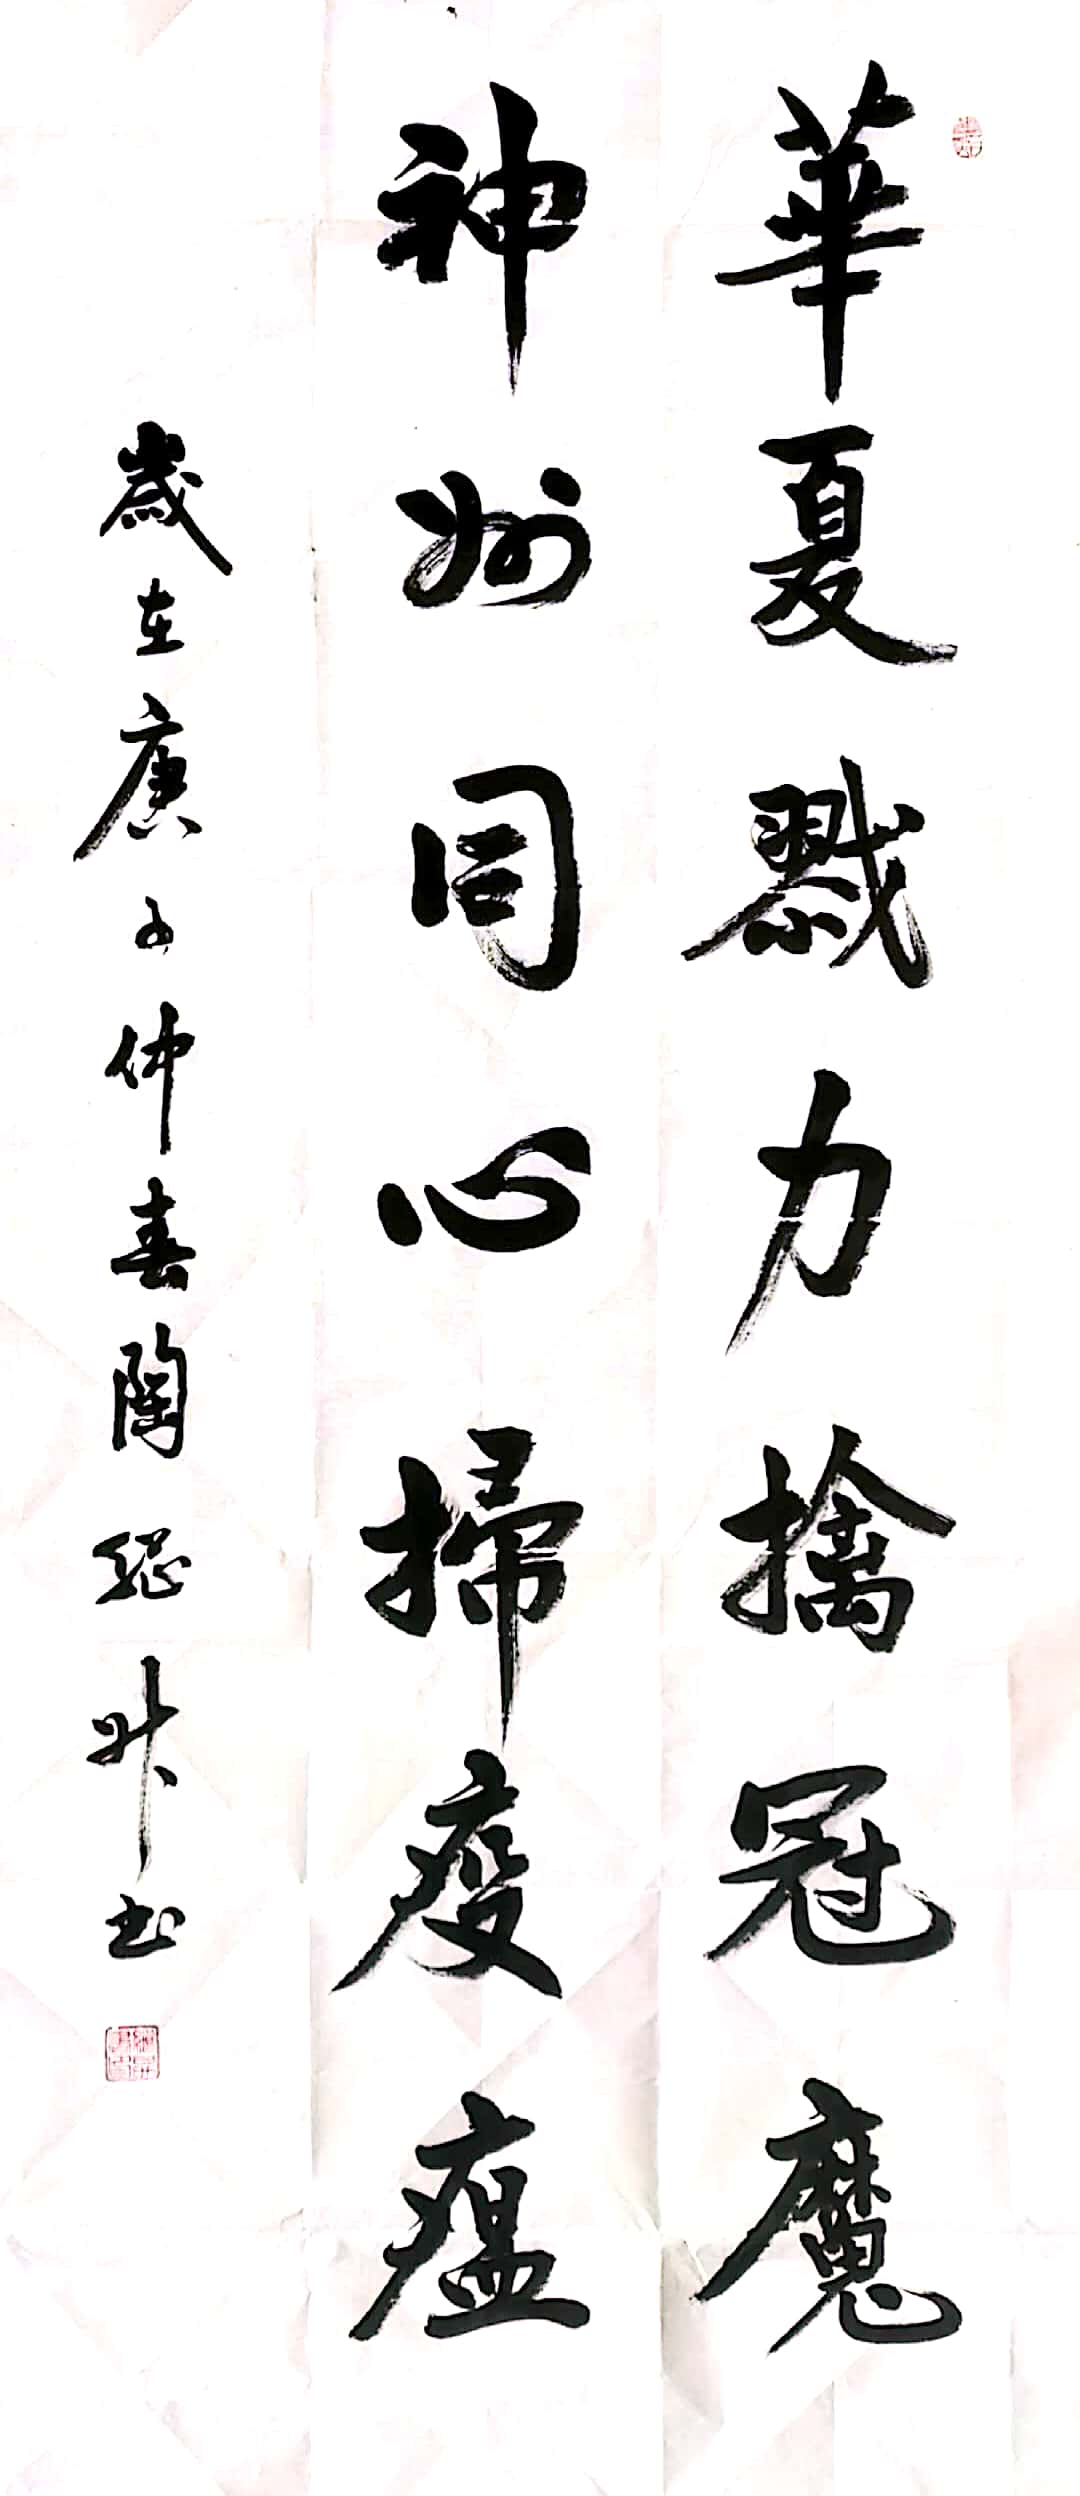 華夏戮力擒冠魔
神州同心掃疫瘟
歲在庚子仲春陶繼升书